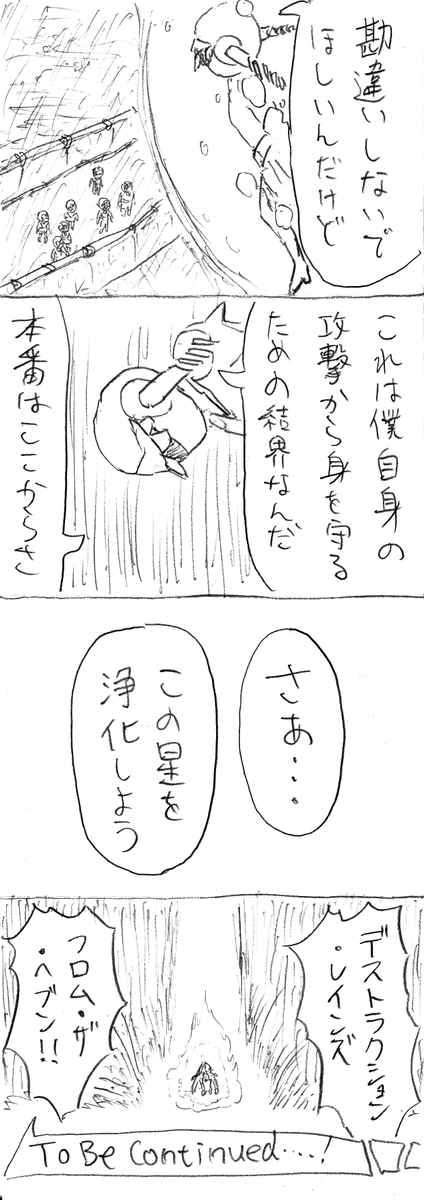 勘違いしないで
ほしいんだけど
これは僕自身の
攻撃から身を守る
ための結界なんだ
本番はここからさ
さあ・・・
この星を
浄化しよう
デストラクション
・レインズ
フロム・ザ
・ヘブン!!
To Be Continued....!